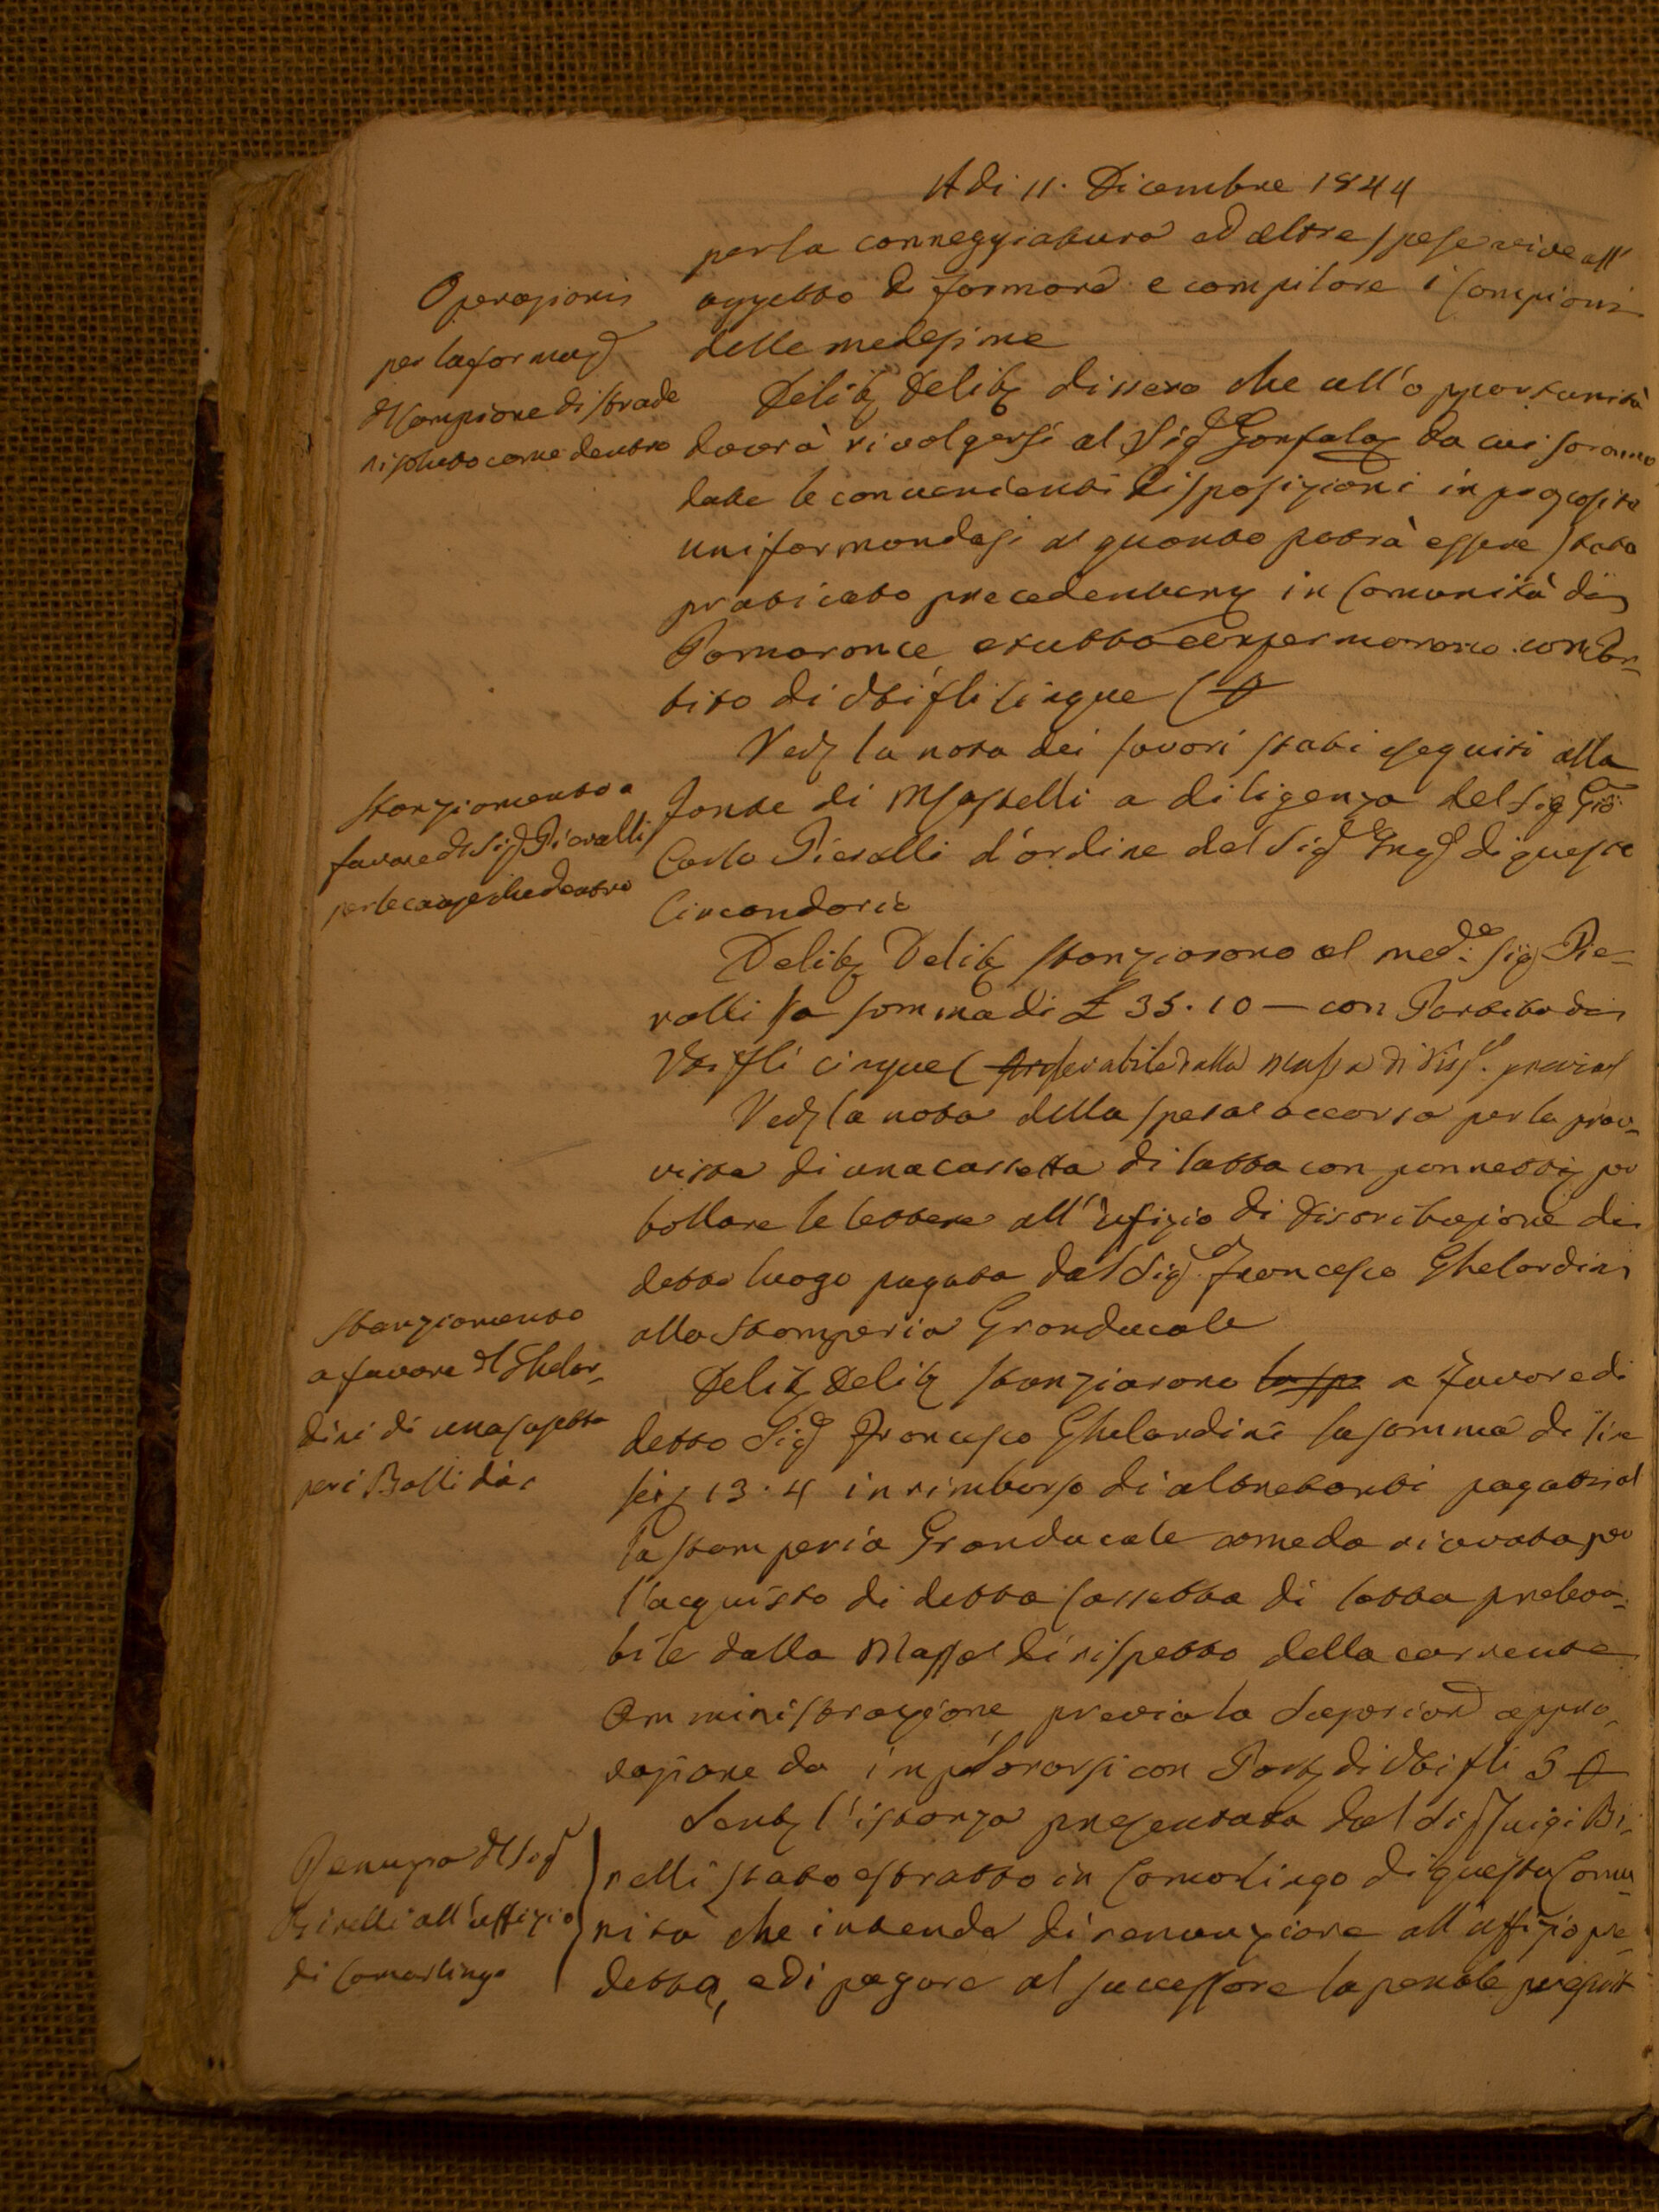 Adi 11. Dicembre 1844
per la canneggiatura ed altre spese vive all'
oggetto di formare e compilare i Campioni
delle medesime
Operazionis
per la formaz
di Campione di strade
risoluto come dentro
Delib Delib dissero che all'opportunità
dovrà rivolgersi al Sig Gonfal da cui saranno
date le convenienti disposizioni in proposito
uniformandosi a quanto potrà essere stato
praticato precedentem in Comunità di
Pomarance e tutto confermarono con Par-
tito di Vti fli cinque
Stanziamento a
favore del Sig Pieralli
per le cause che dentro
Ved la nota dei lavori stati eseguiti alla
fonte di Mastelli a diligenza del Sig Gio
Carlo Pieralli d'ordine del Sig Ing di questo
Circondario
Delib Delib stanziarono al med.o Sig Pie-
ralli la somma di £ 35.10 — con Partito di
Vti fli cinque prelevabile dalla massa di Risp. previa
Ved la nota della spesa occorsa per la prov-
vista di una cassetta di latta con pannetti per
bollare le lettere all'Ufizio di Distribuzione di
detto luogo pagata dal Sig. Francesco Ghelardini
alla Stamperia Granducale
Stanziamento
a favore di Ghelar-
dini di una Casetta
per i Bolli di
Delib Delib stanziarono a favore di
detto Sig Francesco Ghelardini la somma di lire
sei 13.4 in rimborso di altrettanti pagati al
la stamperia Granducale come da ricevuta per
l'acquisto di detta Cassetta di latta preleva-
bile dalla Massa di rispetto della corrente
Amministrazione previa la Superiore appro-
vazione da implorarsi con Part di Vti fli 5
Renunzia del Sig
Birelli all'uffizio
di Camarlingo
Sent l'istanza presentata dal Sig Luigi Bi-
relli stato estratto in Camarlingo di questa Comu-
nità che intende di renunziare all'uffizio pre-
detto, e di pagare al successore la penale